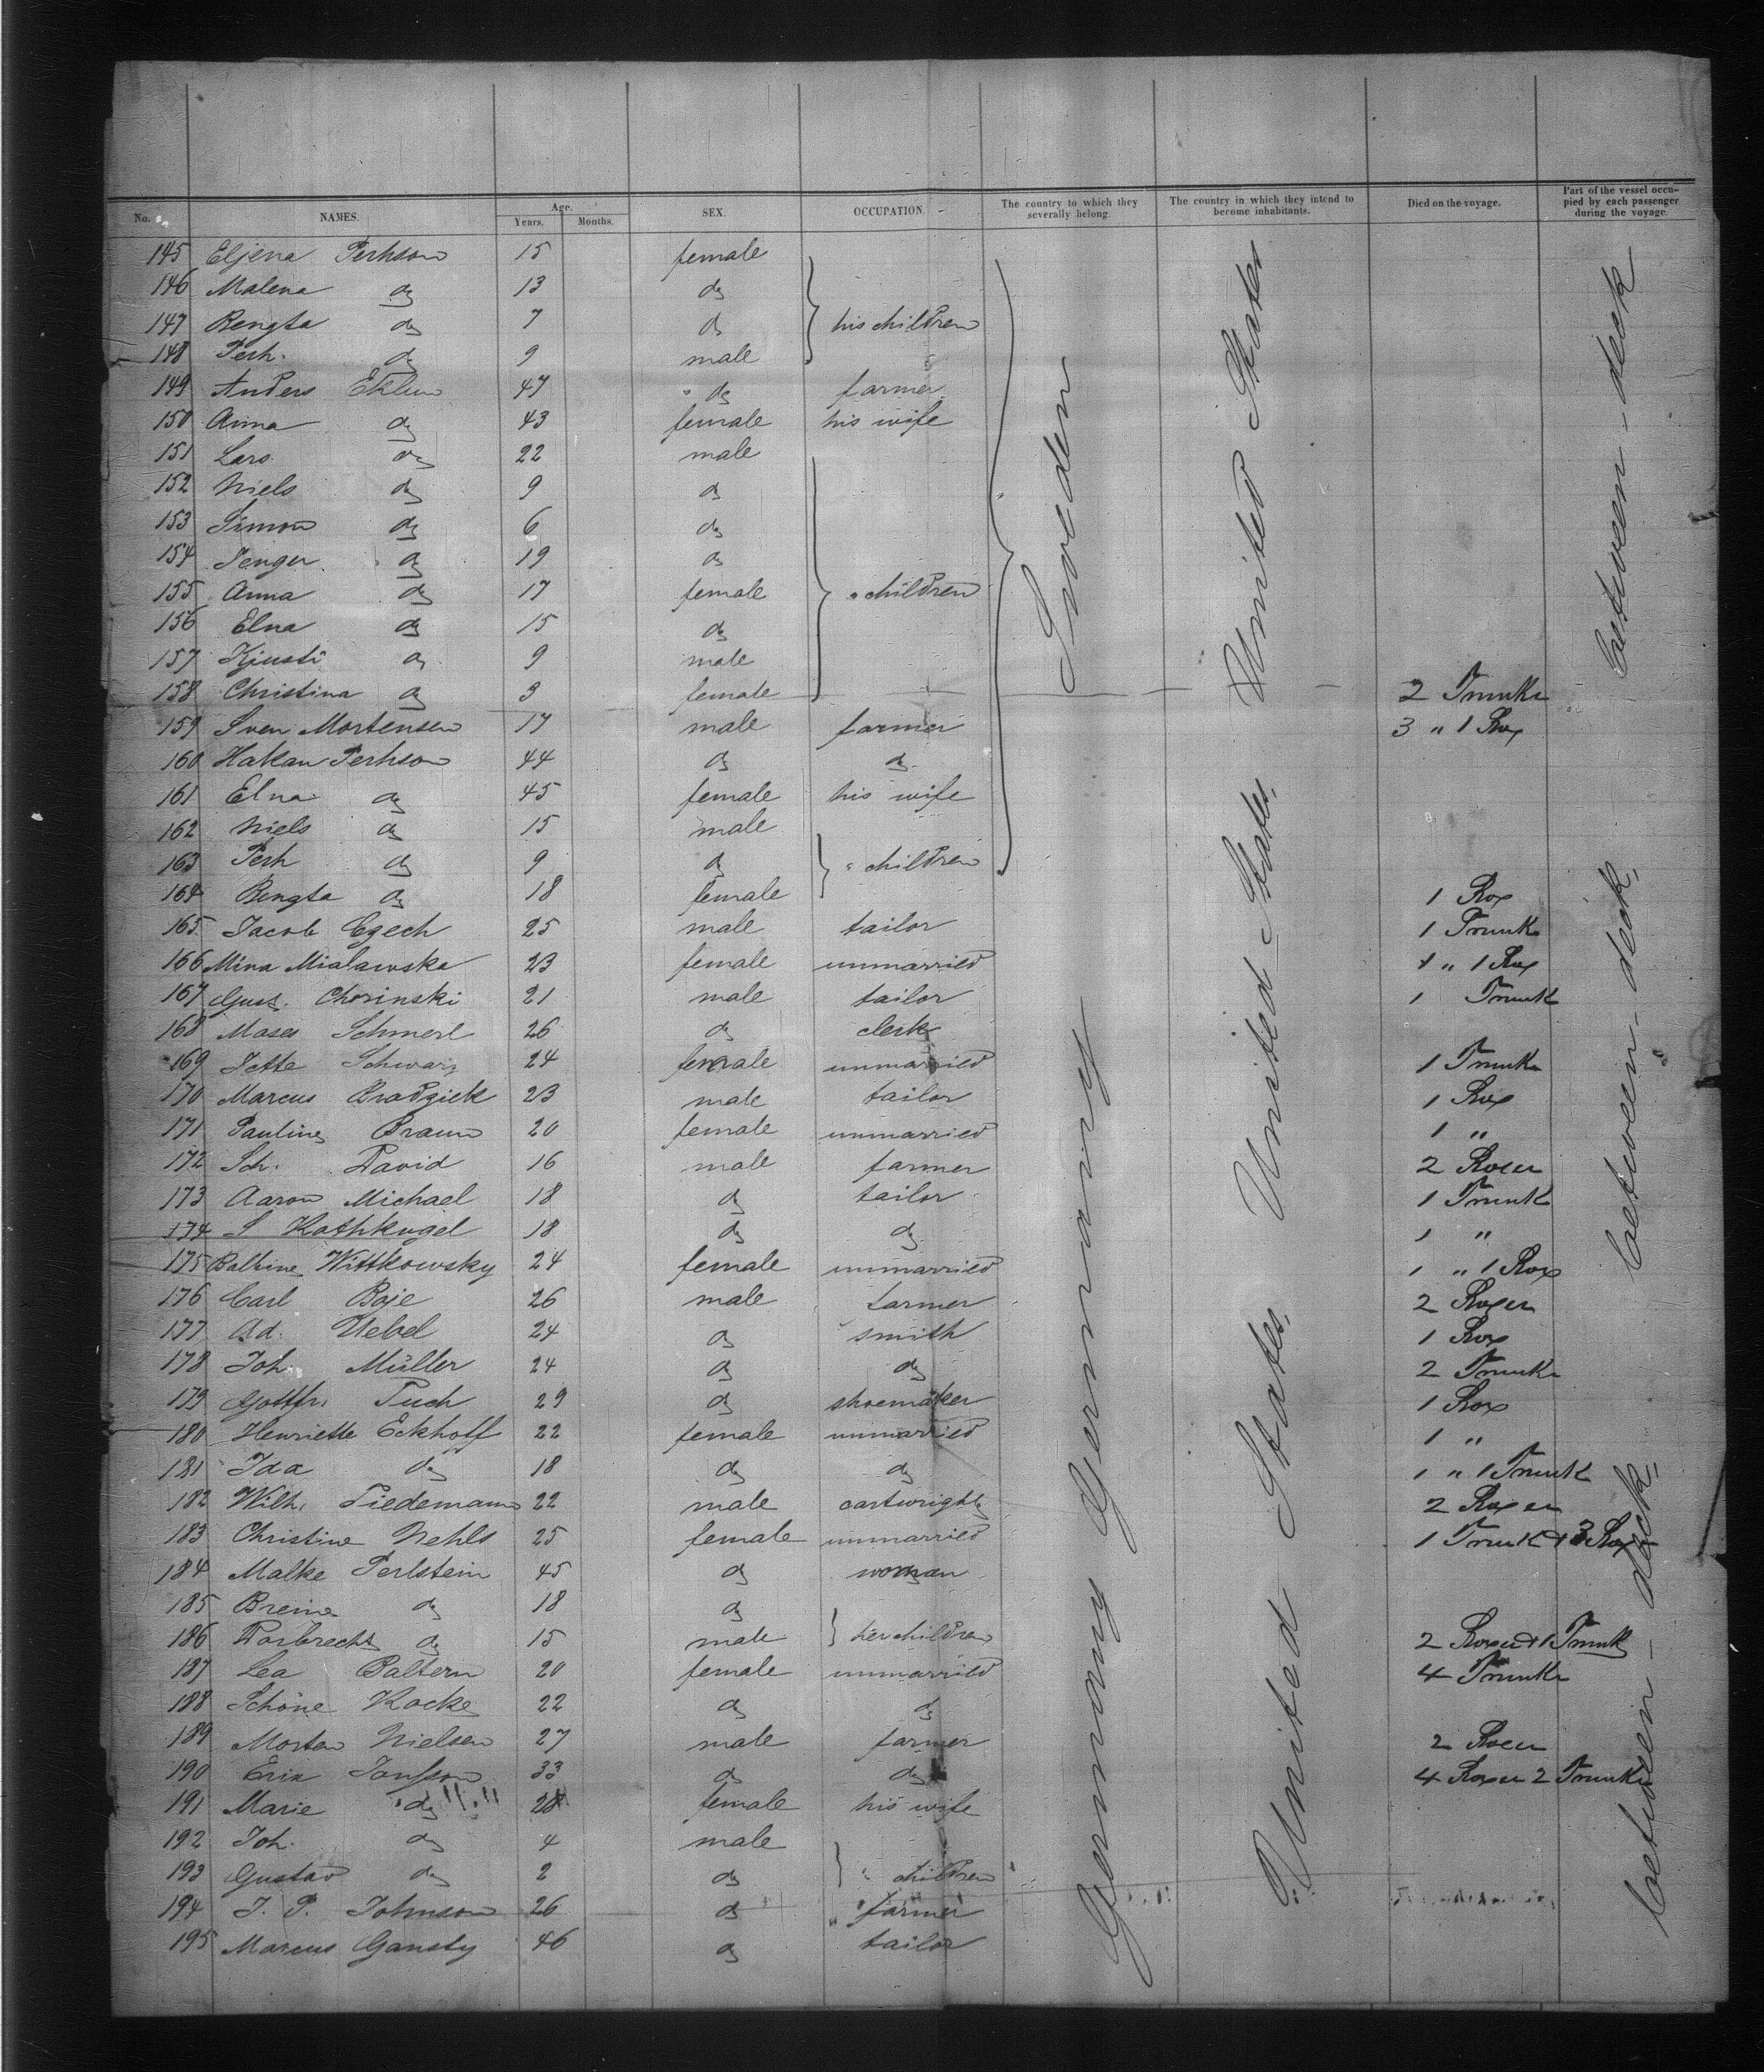 No. NAMES. Age. Years. Months. SEX. OCCUPATION. The country to which they severally belong. The country in which they intend to become inhabitants. Died on the voyage. Part of the vessel occupied by each passenger during the voyage.
145 Eljena Perhson 15 female
146 Malena do 13 do
147 Bengta do 7 do his children
148 Perh. do 9 male
149 Anders Eklun 47 do farmer
150 Anna do 43 female his wife
151 Lars do 22 male
152 Niels do 9 do
153 Simon do 6 do
154 do 19 do
155 Anna do 17 female " children
156 Elna do 15 do
157 do 9 male
158 Christina do 3 female 2 Trunks
159 Sven Mortensen 17 male farmer 3 " 1 Box
160 Hakan Perhson 44 do do
161 Elna do 45 female his wife
162 Niels do 15 male
163 Perh do 9 do " children
164 Bengta do 18 female 1 Box
165 Jacob Czech 25 male tailor 1 Trunk
166 Mina Mialawska 23 female unmarried 1 " 1 Box
167 Gust. Chorinski 21 male tailor 1 Trunk
168 Moses Schmerl 26 do clerk
169 Jette Schwarz 24 female unmarried 1 Trunk
170 Marcus Bradziek 23 male tailor 1 Box
171 Pauline Braun 20 female unmarried 1 "
172 Sch. David 16 male farmer 2 Boxes
173 Aaron Michael 18 do tailor 1 Trunk
174 S Kathkugel 18 do do 1 "
175 Balbine Wittkowsky 24 female unmarried 1 " 1 Box
176 Carl Boje 26 male farmer 2 Boxes
177 Ad. Uebel 24 do smith 1 Box
178 Joh. Müller 24 do do 2 Trunks
179 Gottfr. Tuch 29 do shoemaker 1 Box
180 Henriette Eckhoff 22 female unmarried 1 "
181 Ida do 18 do do 1 " 1 Trunk
182 Wilh. Tiedemann 22 male cartwright 2 Boxes
183 Christine Nehls 25 female unmarried 1 Trunk & 3 Box
184 Malke Perlstein 45 do woman
185 Breine do 18 do
186 do 15 male her children 2 Boxes & 1 Trunk
187 Lea Baltern 20 female unmarried 4 Trunks
188 Schöne Kocke 22 do do
189 Morten Nielsen 27 male farmer 2 Boxes
190 Erik Jansson 33 do do 4 Boxes 2 Trunks
191 Marie do 28 female his wife
192 Joh. do 4 male
193 Gustav do 2 do " children
194 J. P. Johnson 26 do farmer
195 Marcus Gansty 46 do tailor
Sweden
Germany Germany
Germany
United States
United States,
United States,
between-deck
between-deck,
between-deck,